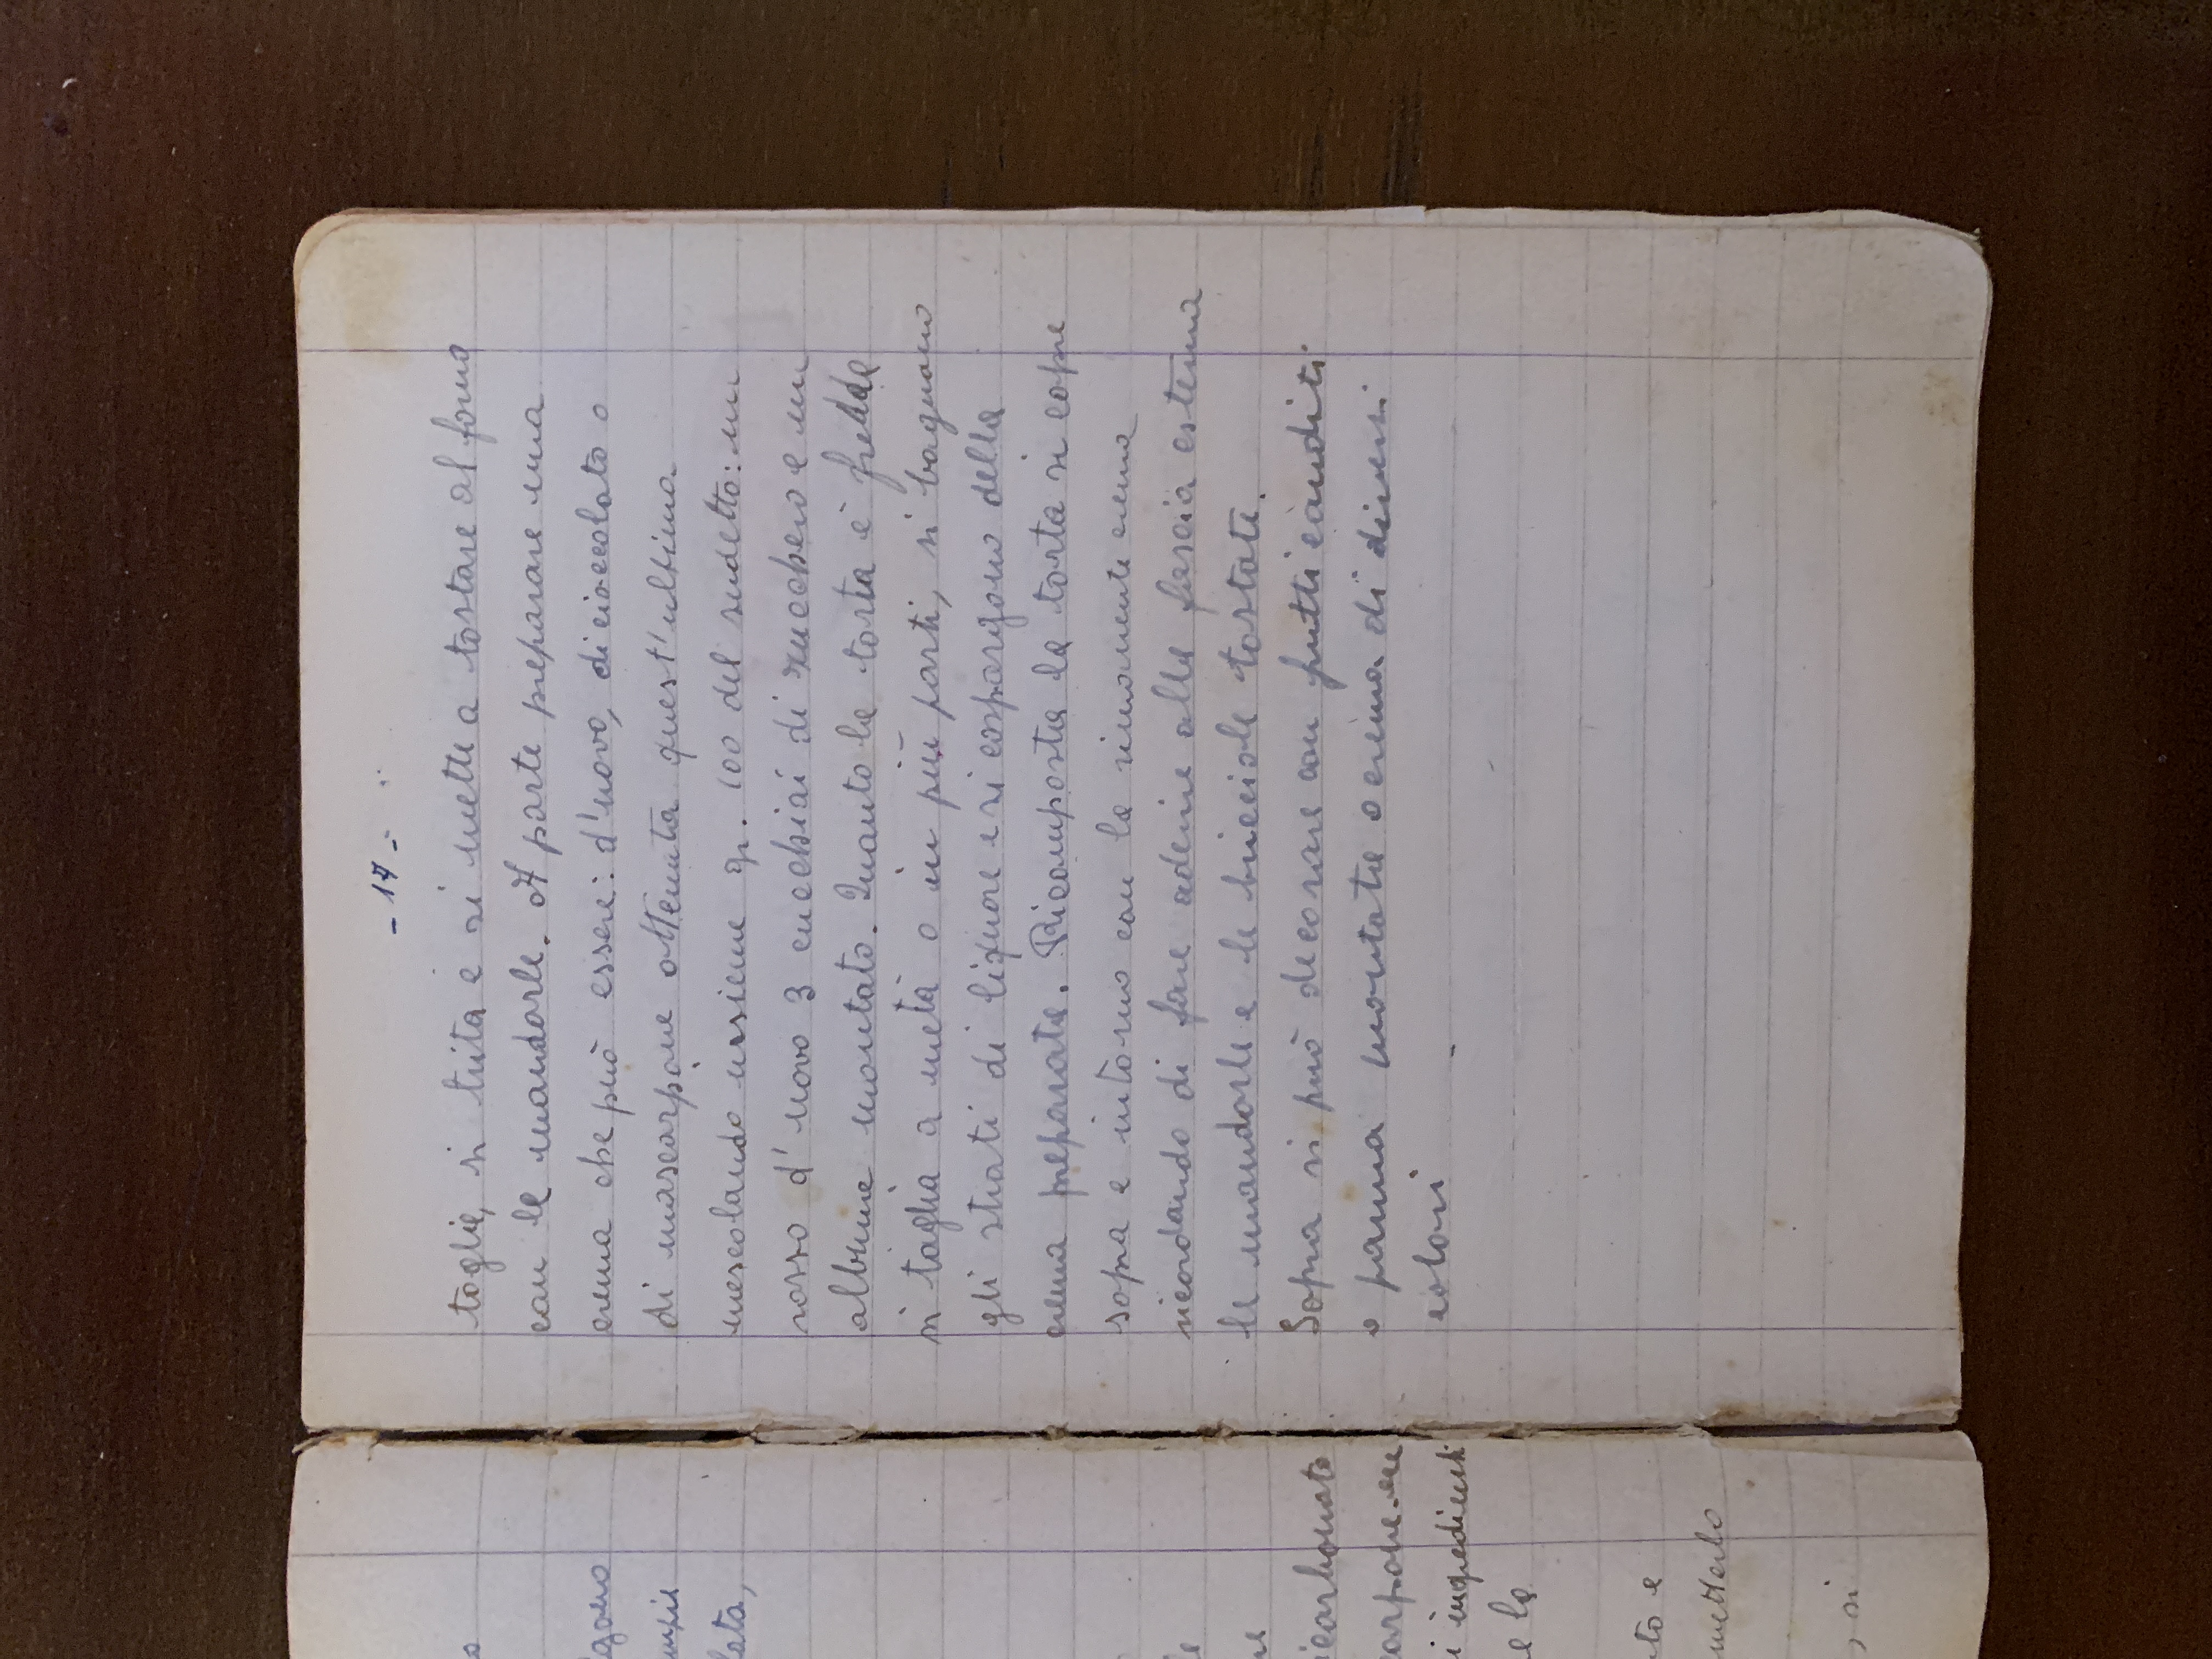 lgono
lata,
icarbonato
carpone
i ingredienti
e la
to e
metterlo
, si
- 17 -
toglie, si trita e si mette a tostare al forno
con le mandorle. A parte preparare una
crema che può essere: d'uovo, di cioccolato o
di mascarpone ottenuta quest'ultima
mescolando inssieme gr. 100 del sudetto: un
rosso d'uovo 3 cucchiai di zucchero e un
albume montato. Quanto la torta è fredda
si taglia a metà o in più parti, si bagnano
gli strati di liquore e si cospargono della
crema preparata. Ricomposta la torta si copre
sopra e intorno con la rimanente crema
ricordando di fare aderire alla fascia esterna
le mandorle e le bricciole tostate.
Sopra si può decorare con frutti canditi
o panna montata o crema di diversi
colori